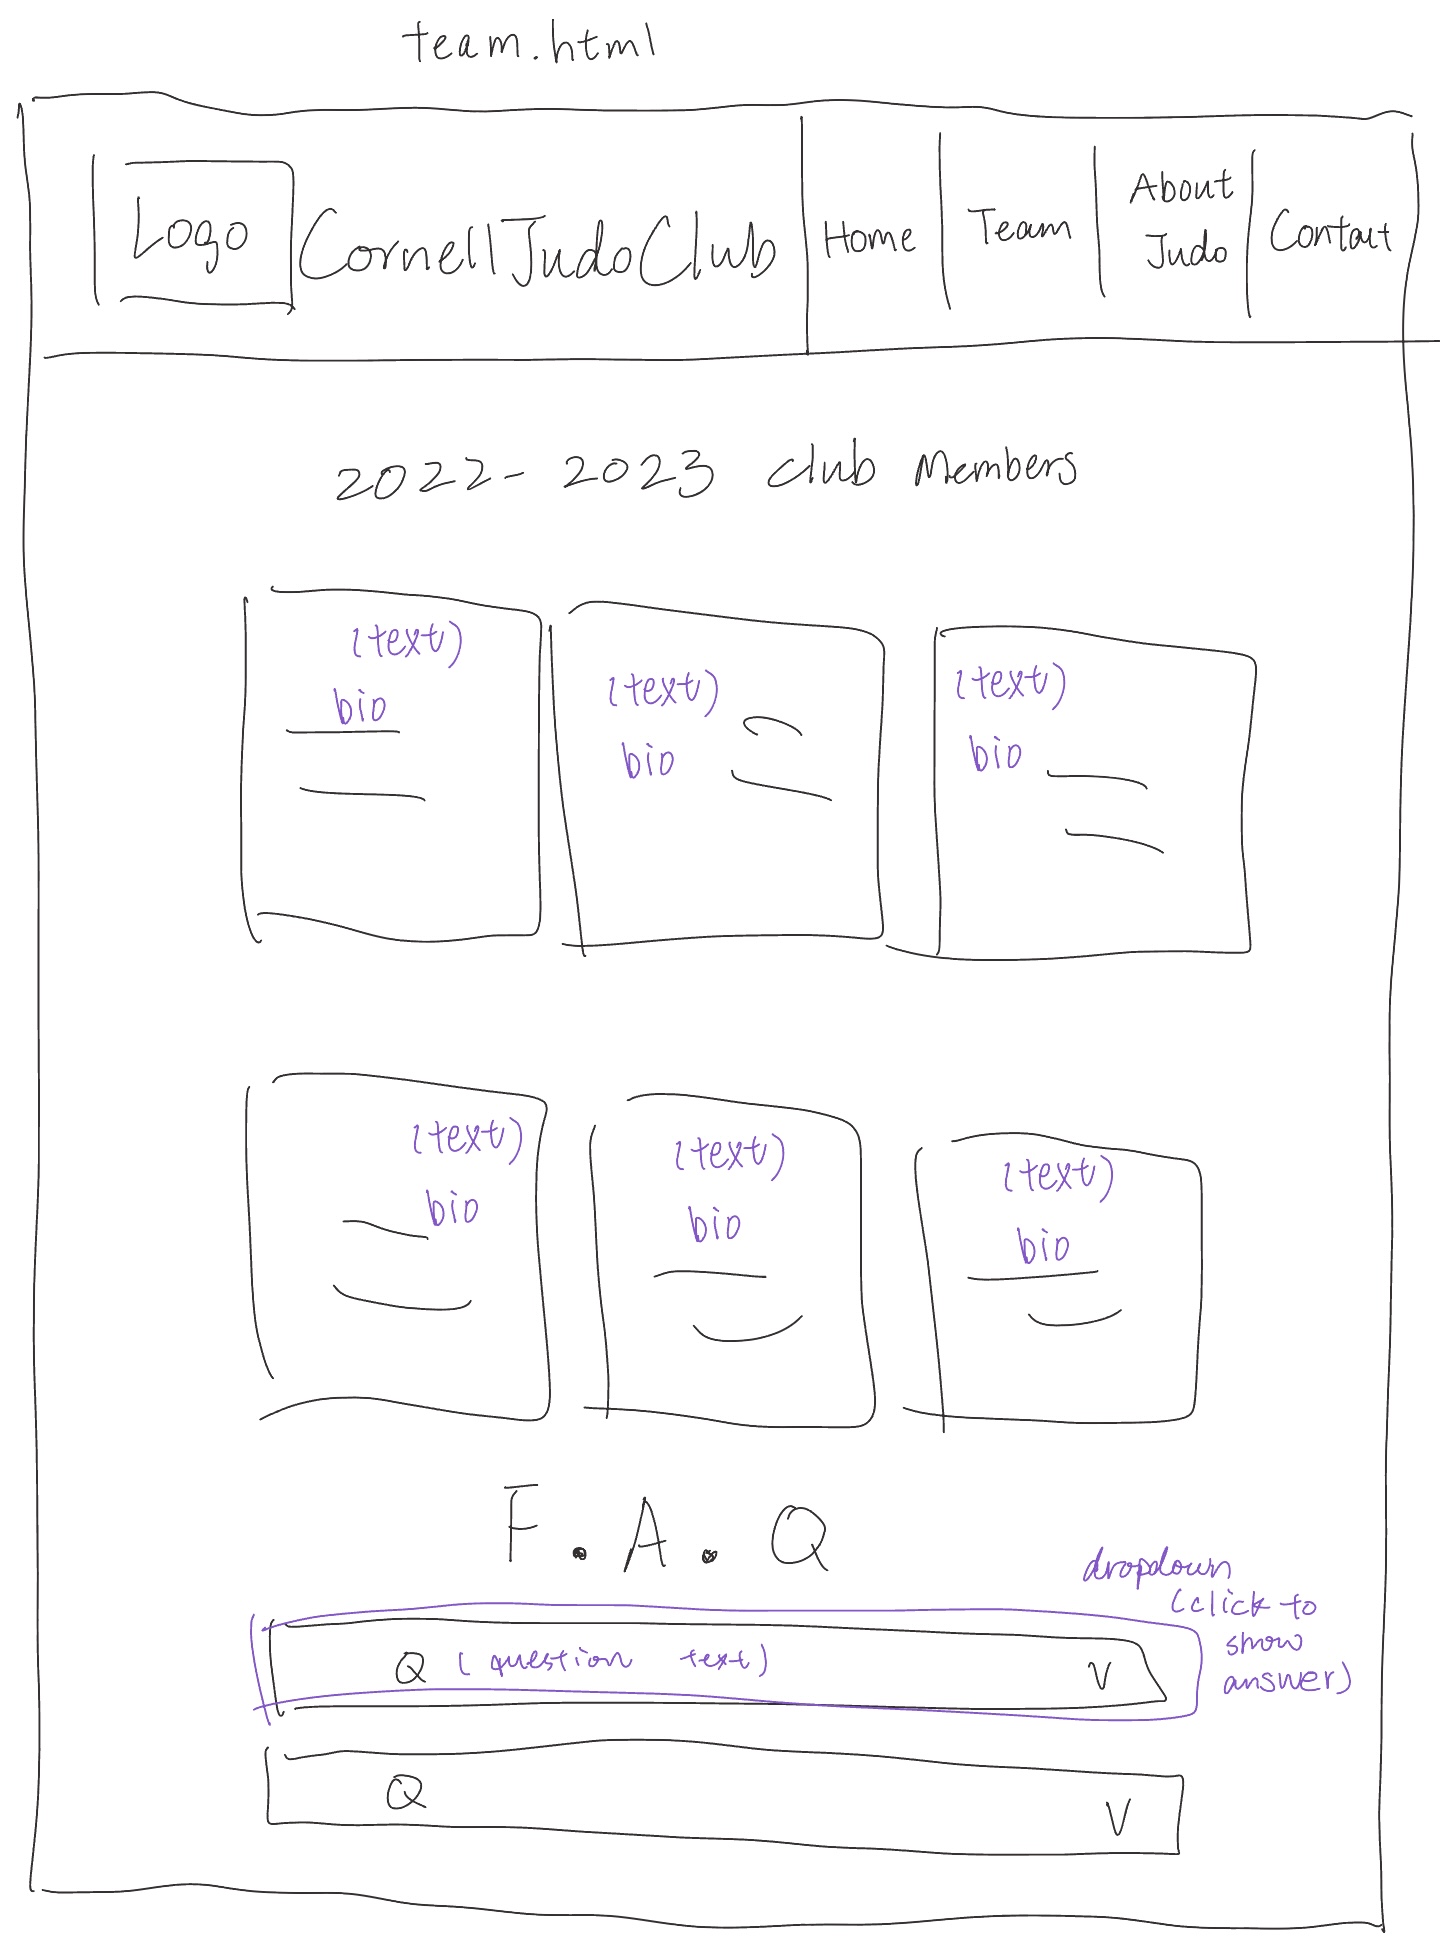 team.html
Logo
CornellJudoClub
Home
Team
About
Judo
Contact
2022-2023 Club Members
(text)
bio
(text)
bio
(text)
bio
(text)
bio
(text)
bio
(text)
bio
F.A.Q
dropdown
(click to
show
answer)
Q (question text) V
Q V